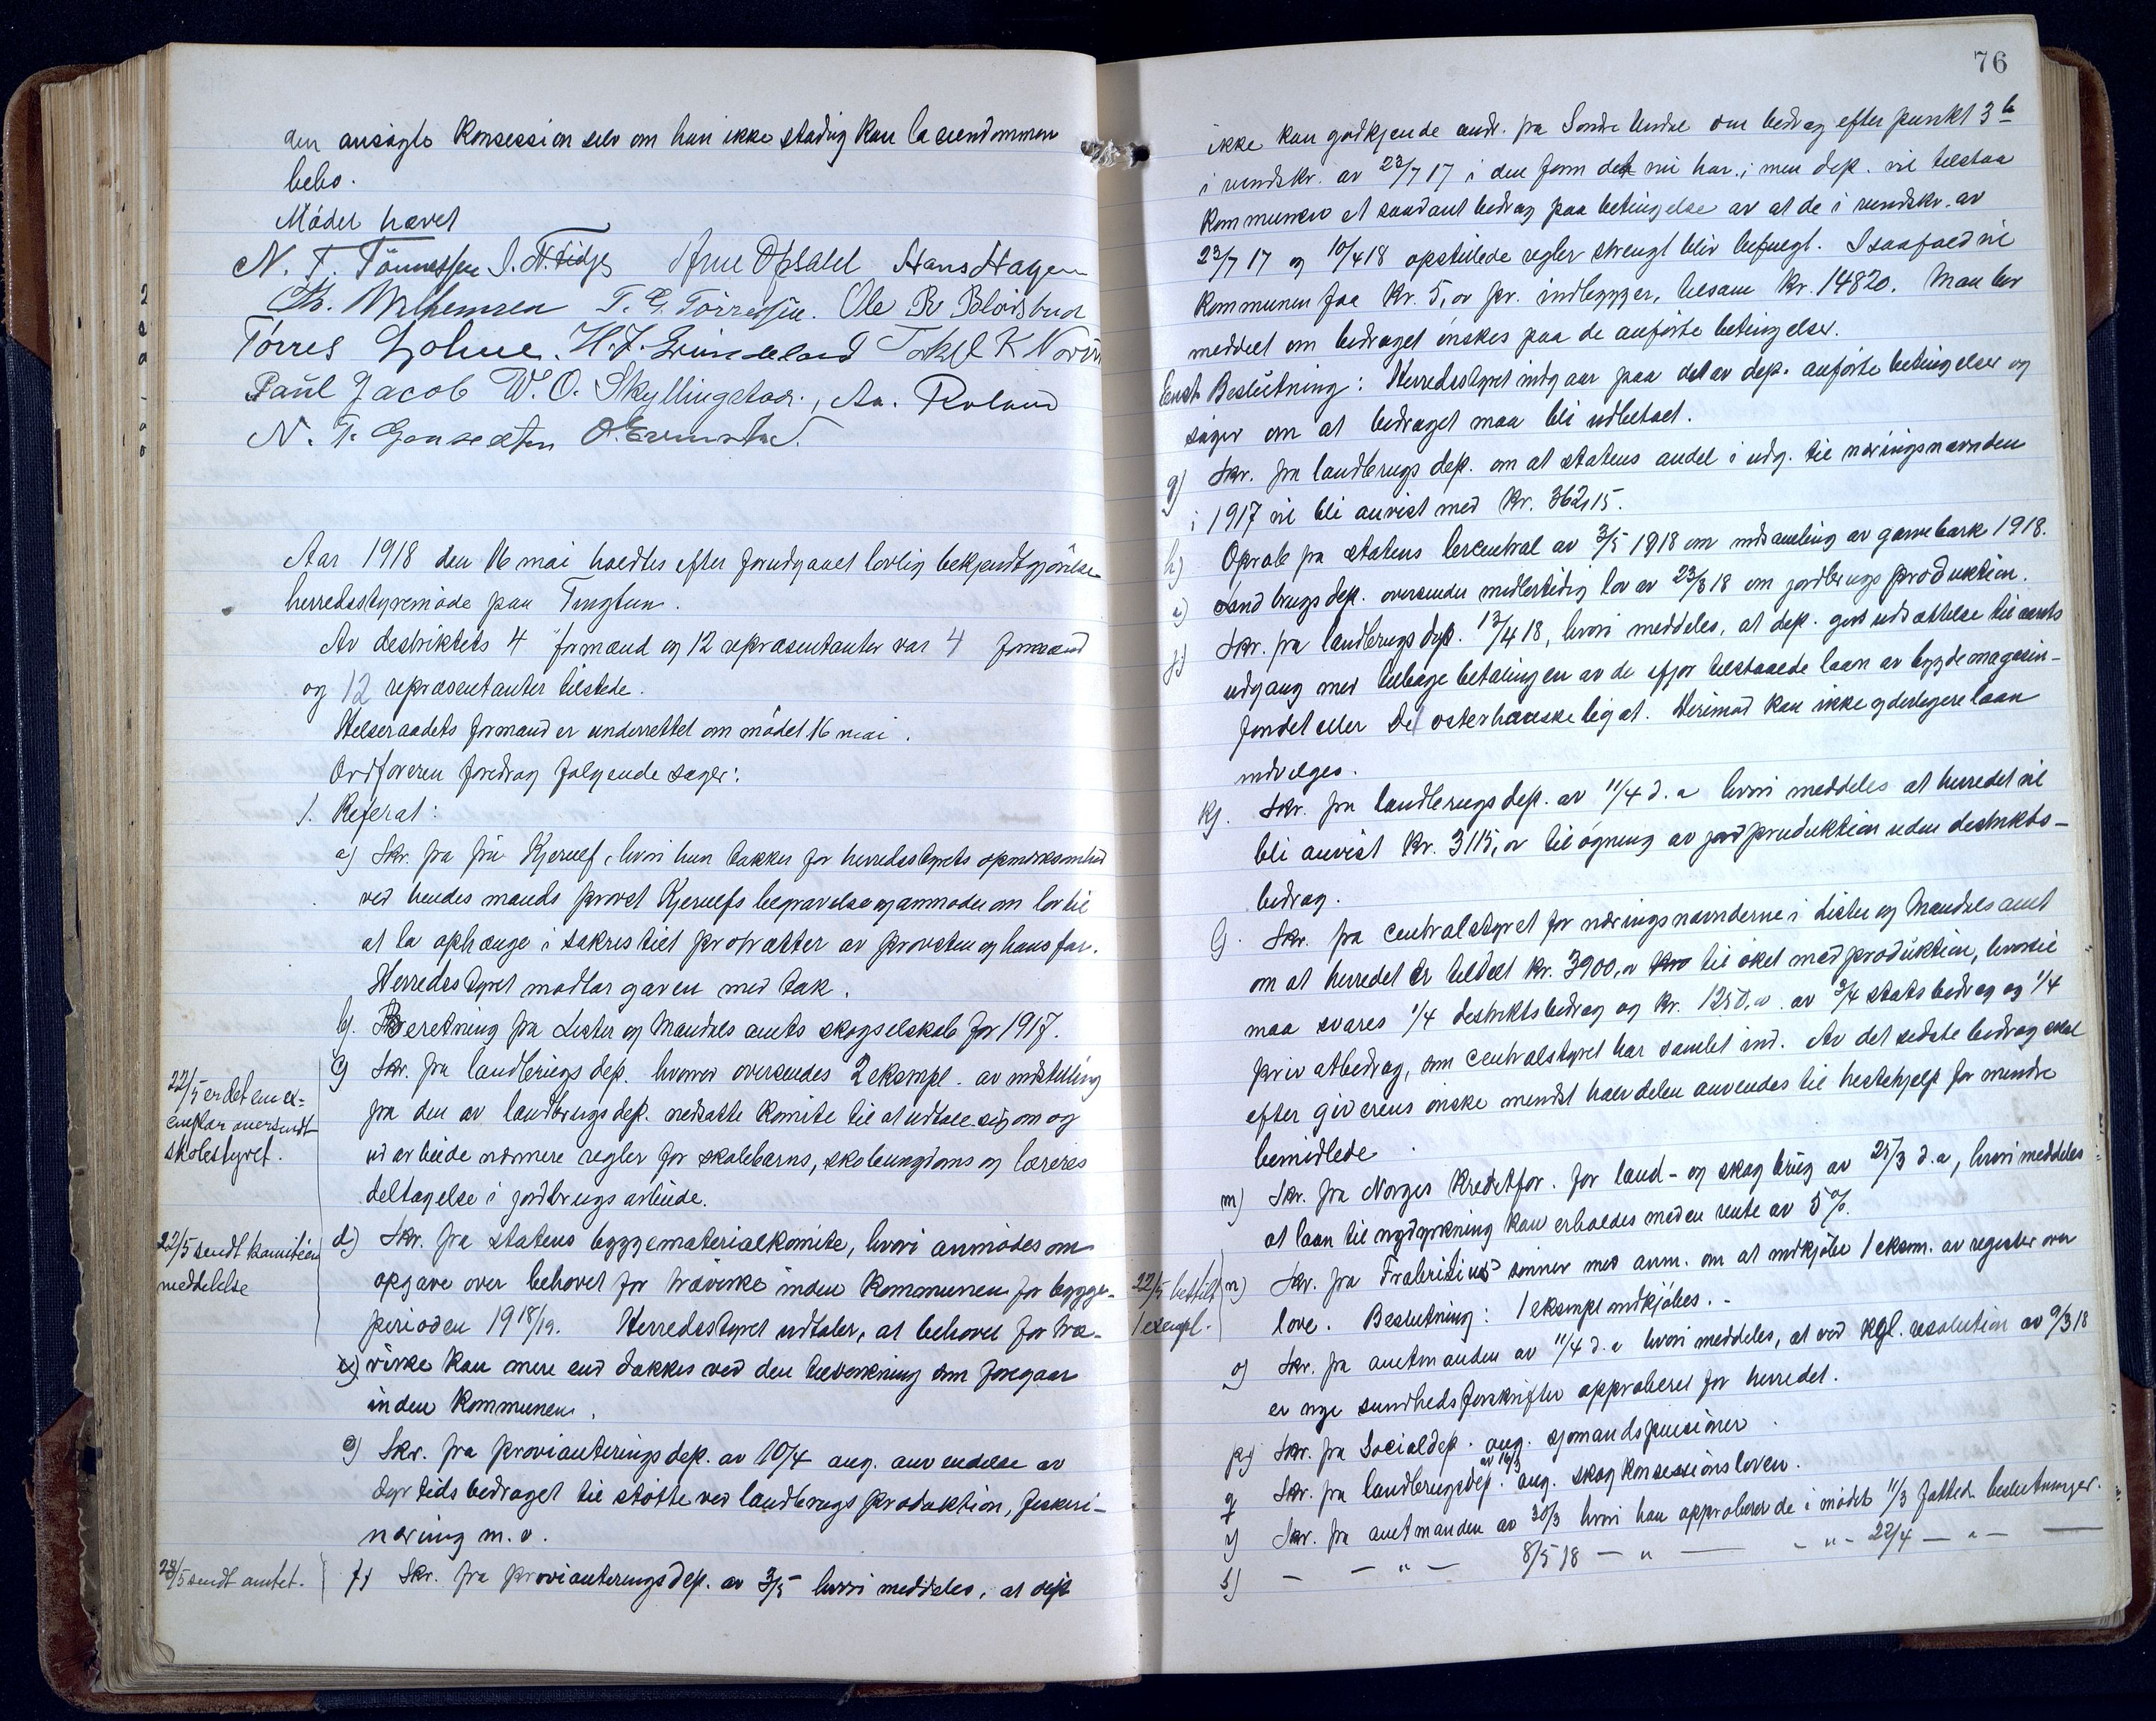 den ansögte Konsession selv om han ikke stadig kan la eiendommen
bebo.
Mödet hævet
N. T. Tönnessen Arne Opsahl Hans Hagen
T. G. Törressen. Ole
Törres H. J. Torkel K
Paul Jacob W. O. Skyllingstad., Aa. Roland
N. T.
Aar 1918 den 16 mai holdtes efter forudgaaet lovlig bekjendtgjörelse
herredsstyremöde paa Tingtun.
Av destriktets 4 formænd og 12 repræsentanter var 4 formænd
og 12 repræsentanter tilstede.
Helseraadets formand er underrettet om mödet 16 mai.
Ordföreren foredrog fölgende sager:
1. Referat:
a) Skr. fra fru Kjerulf, hvori hun takker for herredsstyrets opmerksomhed
ved hendes mands provst Kjerulfs begravelse og anmoder om lov til
at la ophænge i sakristiet protrætter av provsten og hans far.
Herredsstyret modtar gaven med tak.
b). Beretning fra Lister og Mandals amts skogselskab for 1917.
c) Skr. fra landbrugsdep. hvorved oversendes 2 eksmpl. av indstilling
fra den av landbrugsdep. nedsatte komite til at udtale sig om og
udarbeide nærmere regler for skolebarns, skoleungdoms og læreres
deltagelse i jordbrugsarbeide.
22/5 er det en ex=
emplar oversendt
skolestyret.
d) Skr. fra statens byggematerialkomite, hvori anmodes om
opgave over behovet for trævirke inden kommunen for bygge-
perioden 1918/19. Herredsstyret udtaler, at behovet for træ-
virke kan mere end dækkes ved den tilvirkning som foregaar
inden kommunen.
22/5 sendt komiteen
meddelelse
e) Skr. fra provianteringsdep. av 10/4 ang. anvendelse av
dyrtidsbedraget til stötte ved landbrugsproduktion, fiskeri-
næring m. v.
23/5 sendt amtet.
f) Skr. fra provianteringsdep. av 3/5 hvori meddeles, at dep.
76
ikke kan godkjende andr. fra Söndre Undal om bedrag efter punkt 3 b
i rundskr. av 23/7 17 i den form det nu har; men dep. vil tilstaa
kommunen et saadant bedrag paa betingelse av at de i rundskr. av
23/7 17 og 10/4 18 opstillede regler strengt blir befulgt. I saafald vil
kommunen faa kr. 5,00 pr. indbygger, tilsam kr. 14820. Man bør
meddelt om bedraget önskes paa de anförte betingelser.
Enst. Beslutning: Herredsstyret indgaar paa det av dep. anförte betingelser og
söger om at bedraget maa bli udbetalt.
g) Skr. fra landbrugsdep. om at statens andel i udg. til næringsnævnden
i 1917 vil bli anvist med kr. 362,15.
h) Oprob fra statens lærcentral av 3/5 1918 om indsamling av garvebark 1918.
i) Landbrugsdep. oversender midlertidig lov av 23/3 18 om jordbrugsproduktion.
j) Skr. fra landbrugsdep. 12/4 18, hvori meddeles, at dep. gir udsættelse til aarets
udgang med tilbagebetalingen av de ifjor tilstaaede laan av bygdemagasin-
fondet eller Det osterhauske legat. Derimod kan ikke yderligere laan
indvilges.
k). Skr. fra landbrugsdep. av 11/4 d. a hvori meddeles at herredet vil
bli anvist kr. 3115,00 til ögning av jordproduktion uden destrikts-
bedrag.
l). Skr. fra centralstyret for næringsnævnderne i Lister og Mandals amt
om at herredet er tildelt kr. 3900,00 til öket madproduktion, hvortil
maa svares 1/4 destriktsbedrag og kr. 1250,00. av 3/4 statsbedrag og 1/4
privatbedrag, som centralstyret har samlet ind. Av det sidste bedrag skal
efter giverens önske mindst halvdelen anvendes til hestehjelp for mindre
bemidlede.
m) Skr. fra Norges Kreditfor. for land- og skogbrug av 25/3 d. a, hvori meddeles
at laan til nydyrkning kan erholdes med en rente av 5%.
22/5 bestilt
1 exempl.
n) Skr. fra Frabritius sönner med anm. om at indkjöbe 1 eksm. av register over
love. Beslutning: 1 eksmpl indkjöbes. -
o) Skr. fra amtmanden av 11/4 d. a hvori meddeles, at ved kgl. resolution av 9/3 18
er nye sundhedsforskrifter approberet for herredet.
p) Skr. fra Socialdep. ang. sjomandspensioner.
q Skr. fra landbrugsdep. av 16/3 ang. skogkonsessionsloven.
r) Skr. fra amtmanden av 30/3 hvori han approberer de i mödet 11/3 fattede beslutninger.
s) - - " - 8/5 18 - " - - " - 22/4 - " - -